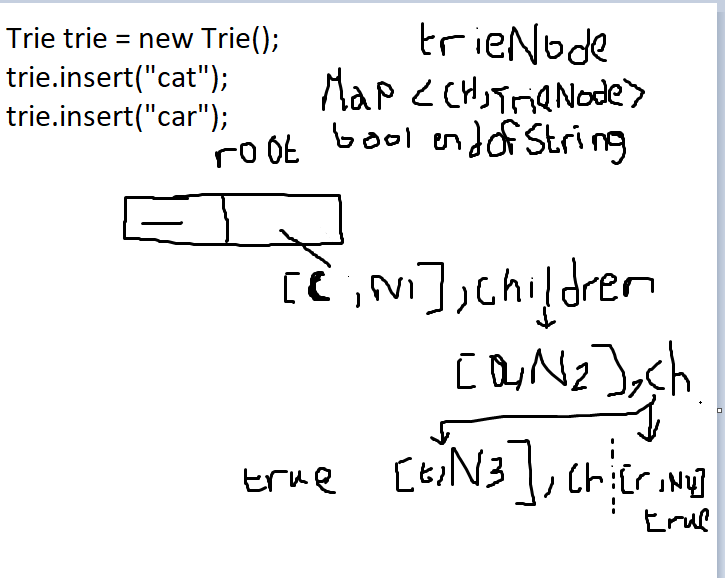 Trie trie = new Trie();
trie.insert("cat");
trie.insert("car");
trieNode
Map <CH,TrieNode>
bool endofString
root
[C ,N1],children
[a,N2],ch
true [t,N3], ch [r ,N4]
true